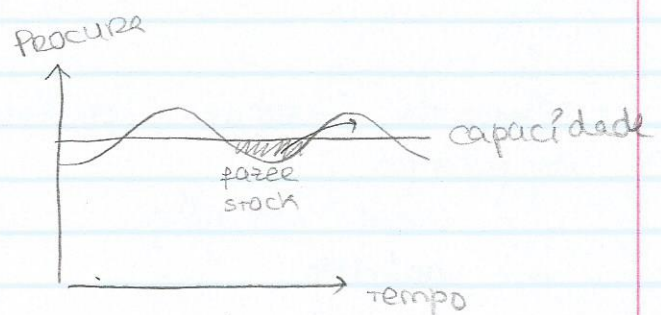 PROCURA
capacidade
fazer
stock
tempo